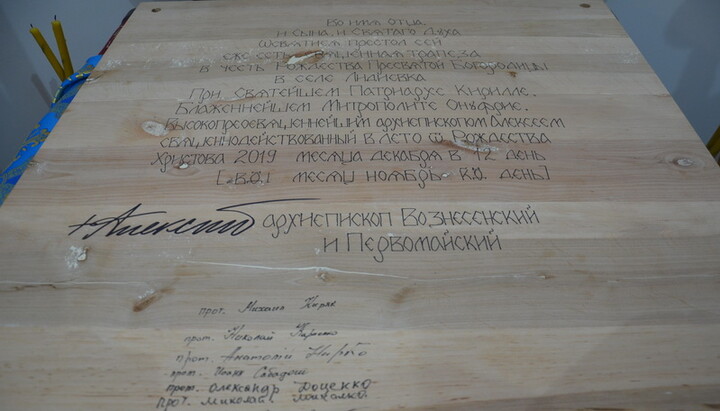 Во имя Отца,
и Сына, и Святаго Духа
Освятися престол сей
еже есть священная трапеза
в честь Рождества Пресвятой Богородицы
в селе Лидиевка
При Святейшем Патриархе Кирилле.
Блаженнейшем Митрополите Онуфрие.
Высокопреосвященнейшим архиепископом Алексеем
священнодействованный в лето ѿ Рождества
Христова 2019 месяца декабря в 12 день
месяц ноябрь к.ѳ. день]
+Алексий архиепископ Вознесенский
и Первомайский
прот. Михаил
прот. Николай
прот. Анатолий
прот.
прот. Олександр Доценко
прот. Миколай